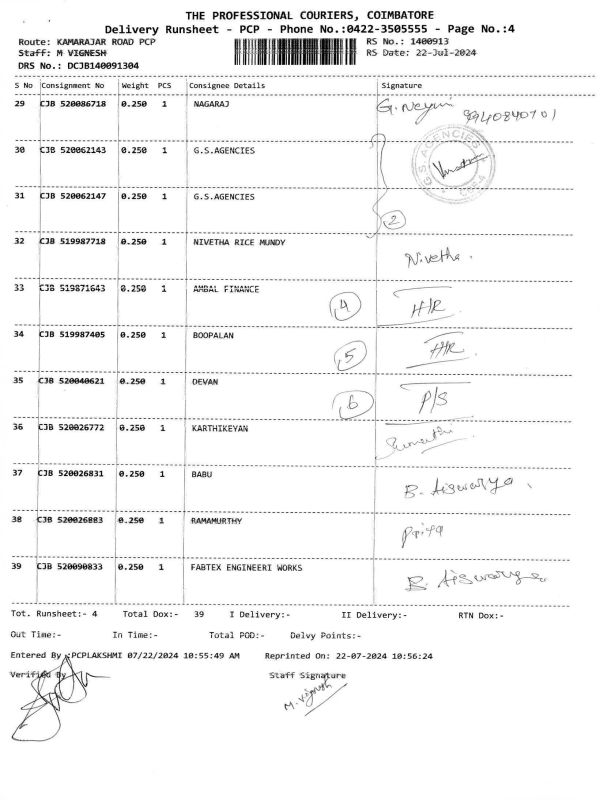 THE PROFESSIONAL COURIERS, COIMBATORE
Delivery Runsheet - PCP - Phone No.:0422-3505555 - Page No.:4
Route: KAMARAJAR ROAD PCP RS No.: 1400913
Staff: M VIGNESH RS Date: 22-Jul-2024
DRS No.: DCJB140091304
S No Consignment No Weight PCS Consignee Details Signature
29 CJB 520086718 0.250 1 NAGARAJ
9940840701
30 CJB 520062143 0.250 1 G.S.AGENCIES
G.S. AGENCIES
31 CJB 520062147 0.250 1 G.S.AGENCIES
2
32 CJB 519987718 0.250 1 NIVETHA RICE MUNDY Nivetha.
33 CJB 519871643 0.250 1 AMBAL FINANCE 4 H/R
34 CJB 519987405 0.250 1 BOOPALAN 5 H/R
35 CJB 520040621 0.250 1 DEVAN 6 P/S
36 CJB 520026772 0.250 1 KARTHIKEYAN Sumathi
37 CJB 520026831 0.250 1 BABU B. Aiswarya.
38 CJB 520026883 0.250 1 RAMAMURTHY Priya
39 CJB 520090833 0.250 1 FABTEX ENGINEERI WORKS B. Aiswarya
Tot. Runsheet:- 4 Total Dox:- 39 I Delivery:- II Delivery:- RTN Dox:-
Out Time:- In Time:- Total POD:- Delvy Points:-
Entered By :PCPLAKSHMI 07/22/2024 10:55:49 AM Reprinted On: 22-07-2024 10:56:24
Verified By Staff Signature
M. Vignesh